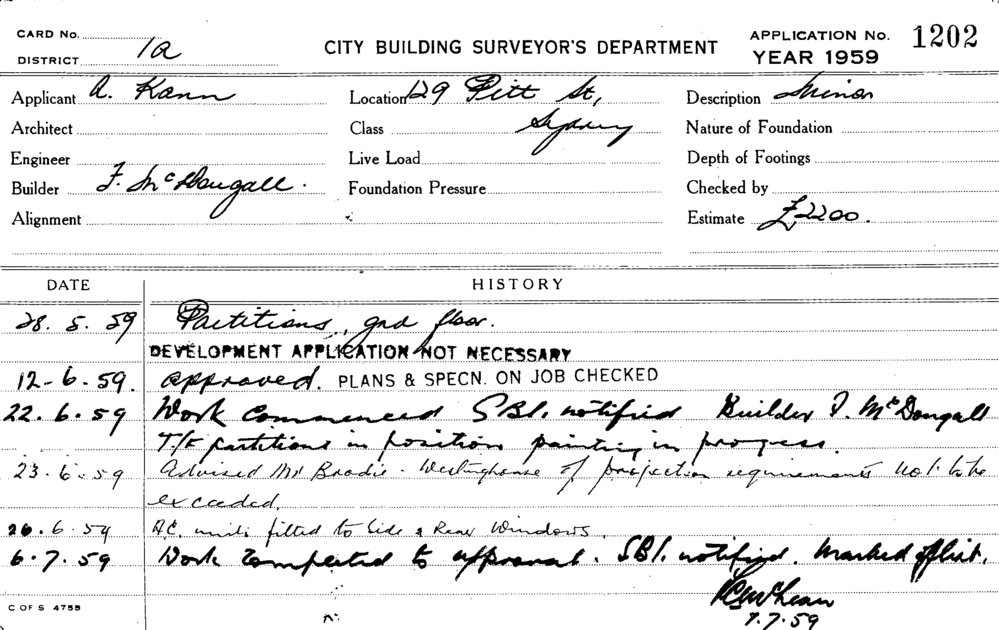 CARD No.
DISTRICT 1a
CITY BUILDING SURVEYOR'S DEPARTMENT
APPLICATION No. 1202
YEAR 1959
Applicant A. Kann
Location 129 Pitt St,
Description Minor
Architect
Class Sydney
Nature of Foundation
Engineer
Live Load
Depth of Footings
Builder F. McDougall.
Foundation Pressure
Checked by
Alignment
Estimate £2200.
DATE HISTORY
28. 5. 59 Partitions, gnd floor.
DEVELOPMENT APPLICATION NOT NECESSARY
12-6-59. approved. PLANS & SPECN. ON JOB CHECKED
22. 6. 59 Work commenced SBI. notified Builder F. McDougall
T/f partitions in position painting in progress.
23-6-59 Advised Mr Brodie - Westinghouse of projection requirements not to be
exceeded.
26. 6. 59 A.C. units fitted to Side & Rear Windows.
6. 7. 59 Work completed to approval. SBI. notified. Marked off list.
7.7.59
C OF S 4755